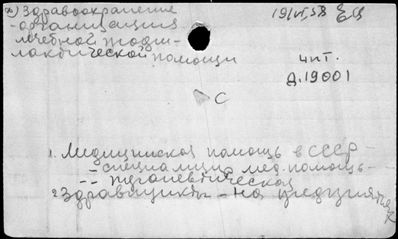 а) Здравоохранение
- организация
лечебной профи-
лактической помощи
19/VI,58
чит.
Д.19001
С
1. Медицинская помощь в СССР -
- специализир. мед. помощь -
-- терапевтическая
2. Здравпункты - на предприятиях